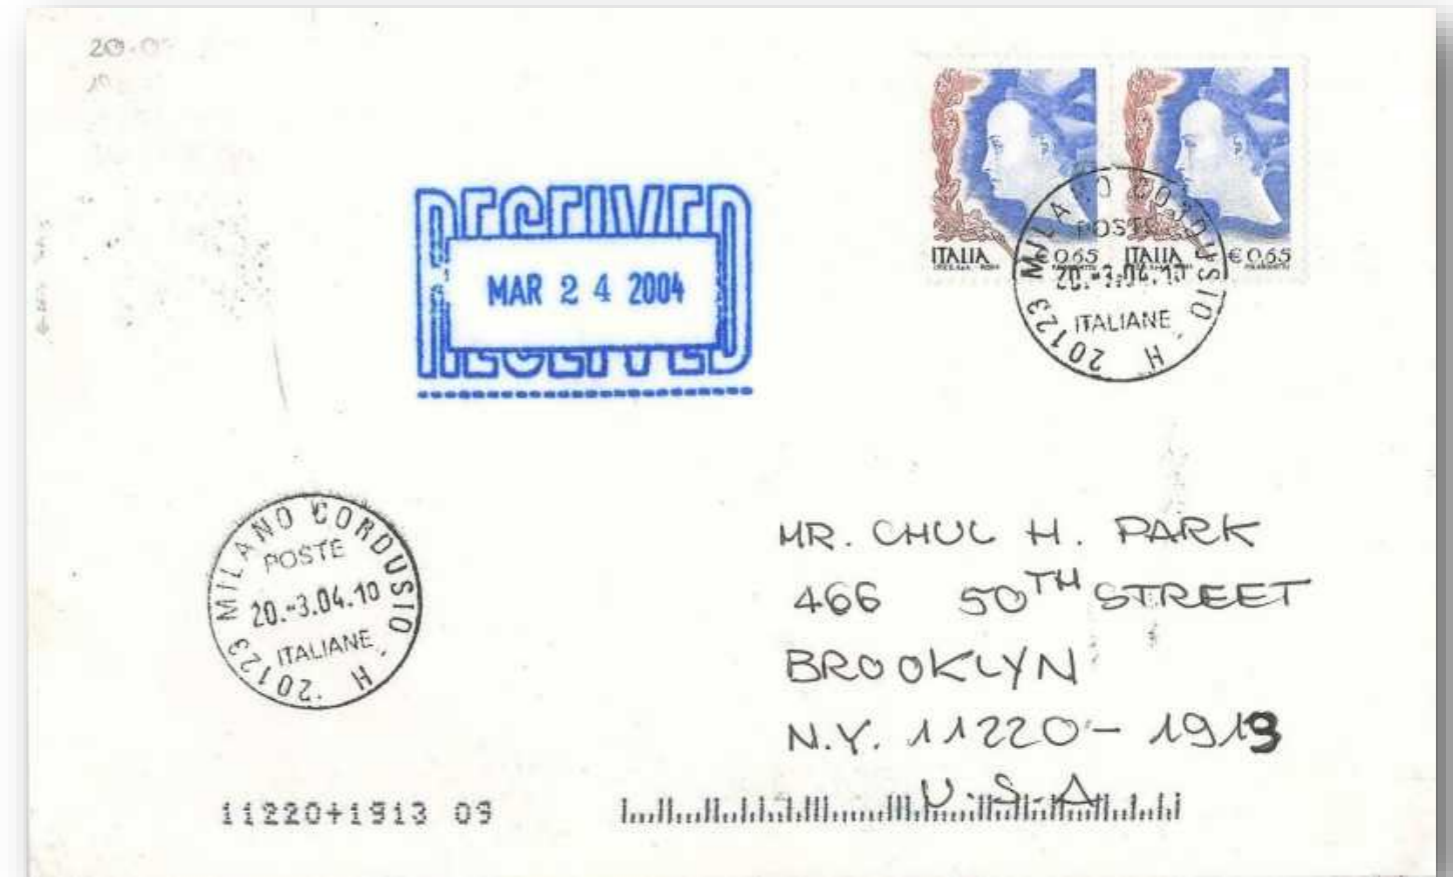 20.0
RECEIVED
MAR 24 2004
RECEIVED
ITALIA €0,65 ITALIA €0,65
20123 MILANO CORDUSIO - H
POSTE
20.-3.04.10
ITALIANE
20123 MILANO CORDUSIO - H
POSTE
20.-3.04.10
ITALIANE
MR. CHUL H. PARK
466 50TH STREET
BROOKLYN
N.Y. 11220-1913
U.S.A
11220+1913 09